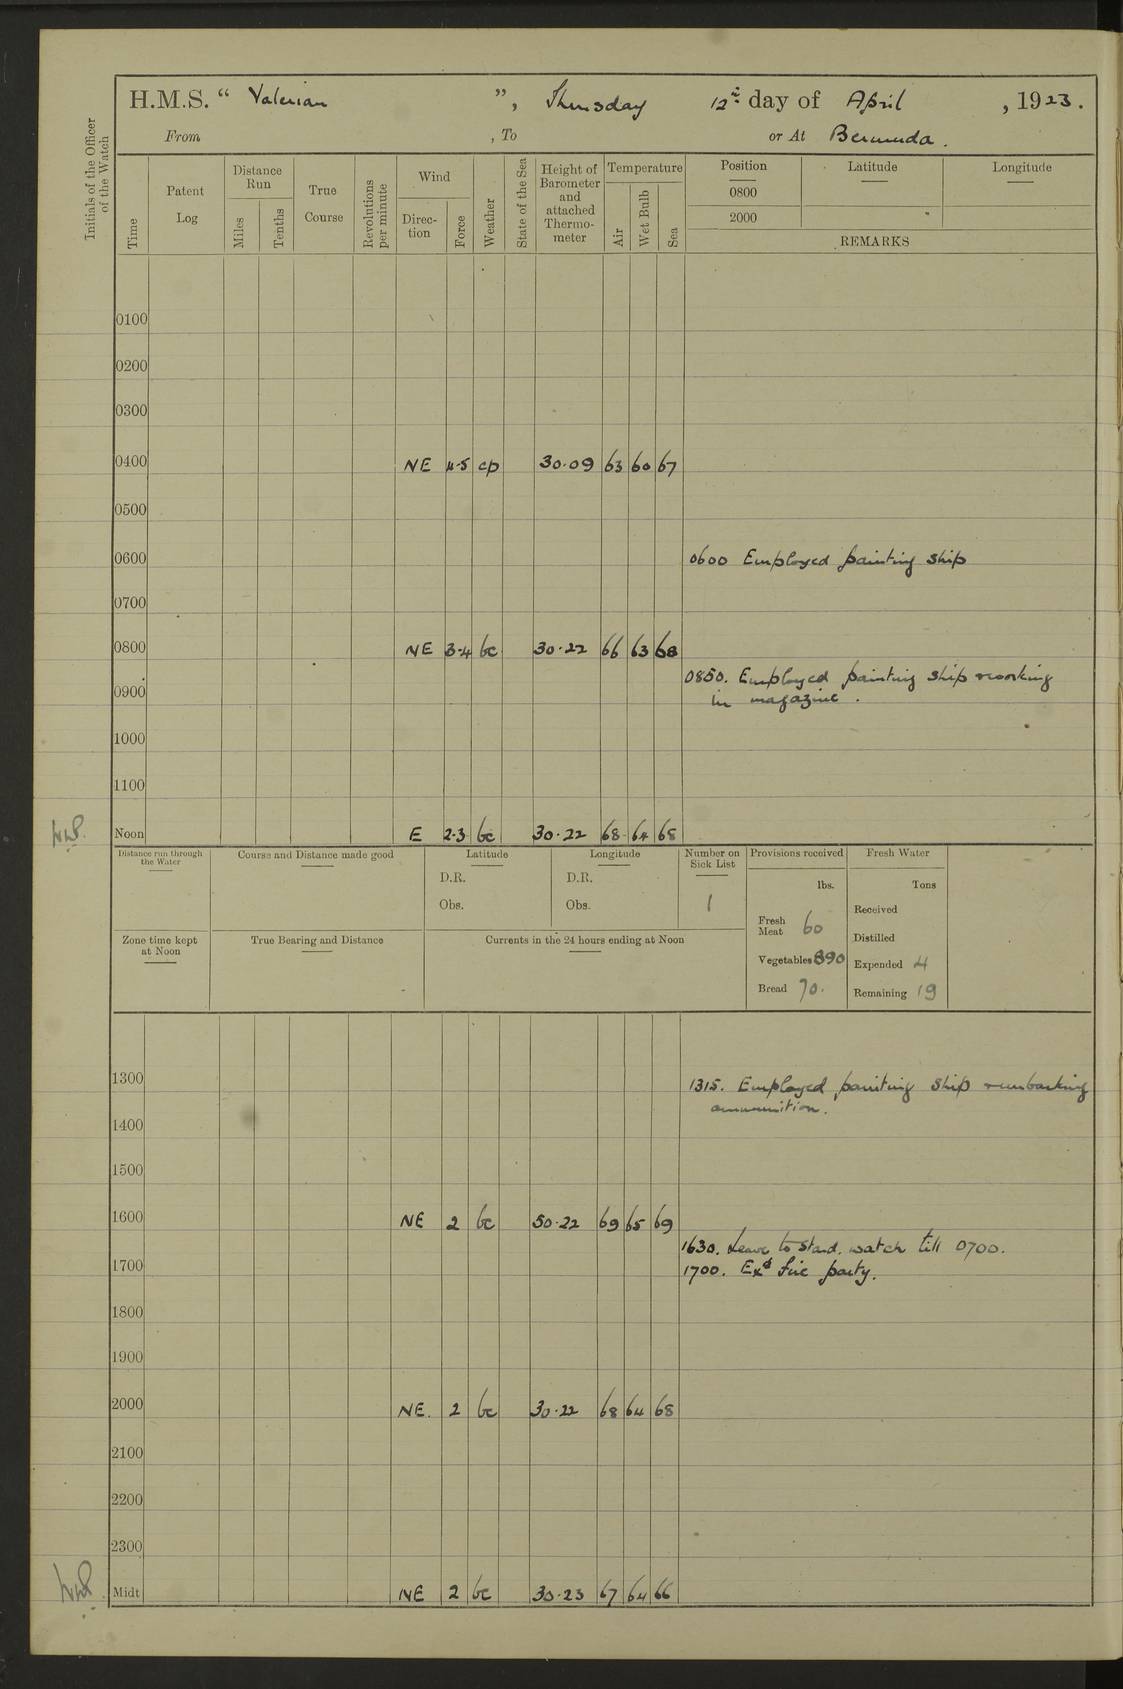 H.M.S. “ Valerian ”, Thursday 12th day of April , 1923.
From , To or At Bermuda.
Initials of the Officer of the Watch
Time
Patent Log
Distance Run
Miles
Tenths
True Course
Revolutions per minute
Wind
Direc-tion
Force
Weather
State of the Sea
Height of Barometer and attached Thermo-meter
Temperature
Air
Wet Bulb
Sea
Position Latitude Longitude
0800
2000
REMARKS
0100
0200
0300
0400 NE 4·5 cp 30·09 63 60 67
0500
0600 0600 Employed painting ship
0700
0800 NE 3·4 bc 30·22 66 63 68
0850. Employed painting ship & working
0900 in magazine.
1000
1100
Noon E 2·3 bc 30·22 68 64 68
Distance run through the Water
Course and Distance made good
Latitude
D.R.
Obs.
Longitude
D.R.
Obs.
Number on Sick List
1
Provisions received
lbs.
Fresh Meat 60
Vegetables 890
Bread 70.
Fresh Water
Tons
Received
Distilled
Expended 4
Remaining 19
Zone time kept at Noon
True Bearing and Distance
Currents in the 24 hours ending at Noon
1300 1315. Employed painting ship & embarking
ammunition.
1400
1500
1600 NE 2 bc 50·22 69 65 69
1630. Leave to Stard. watch till 0700.
1700 1700. Exd fire party.
1800
1900
2000 NE. 2 bc 30·22 68 64 68
2100
2200
2300
Midt NE 2 bc 30·23 67 64 66